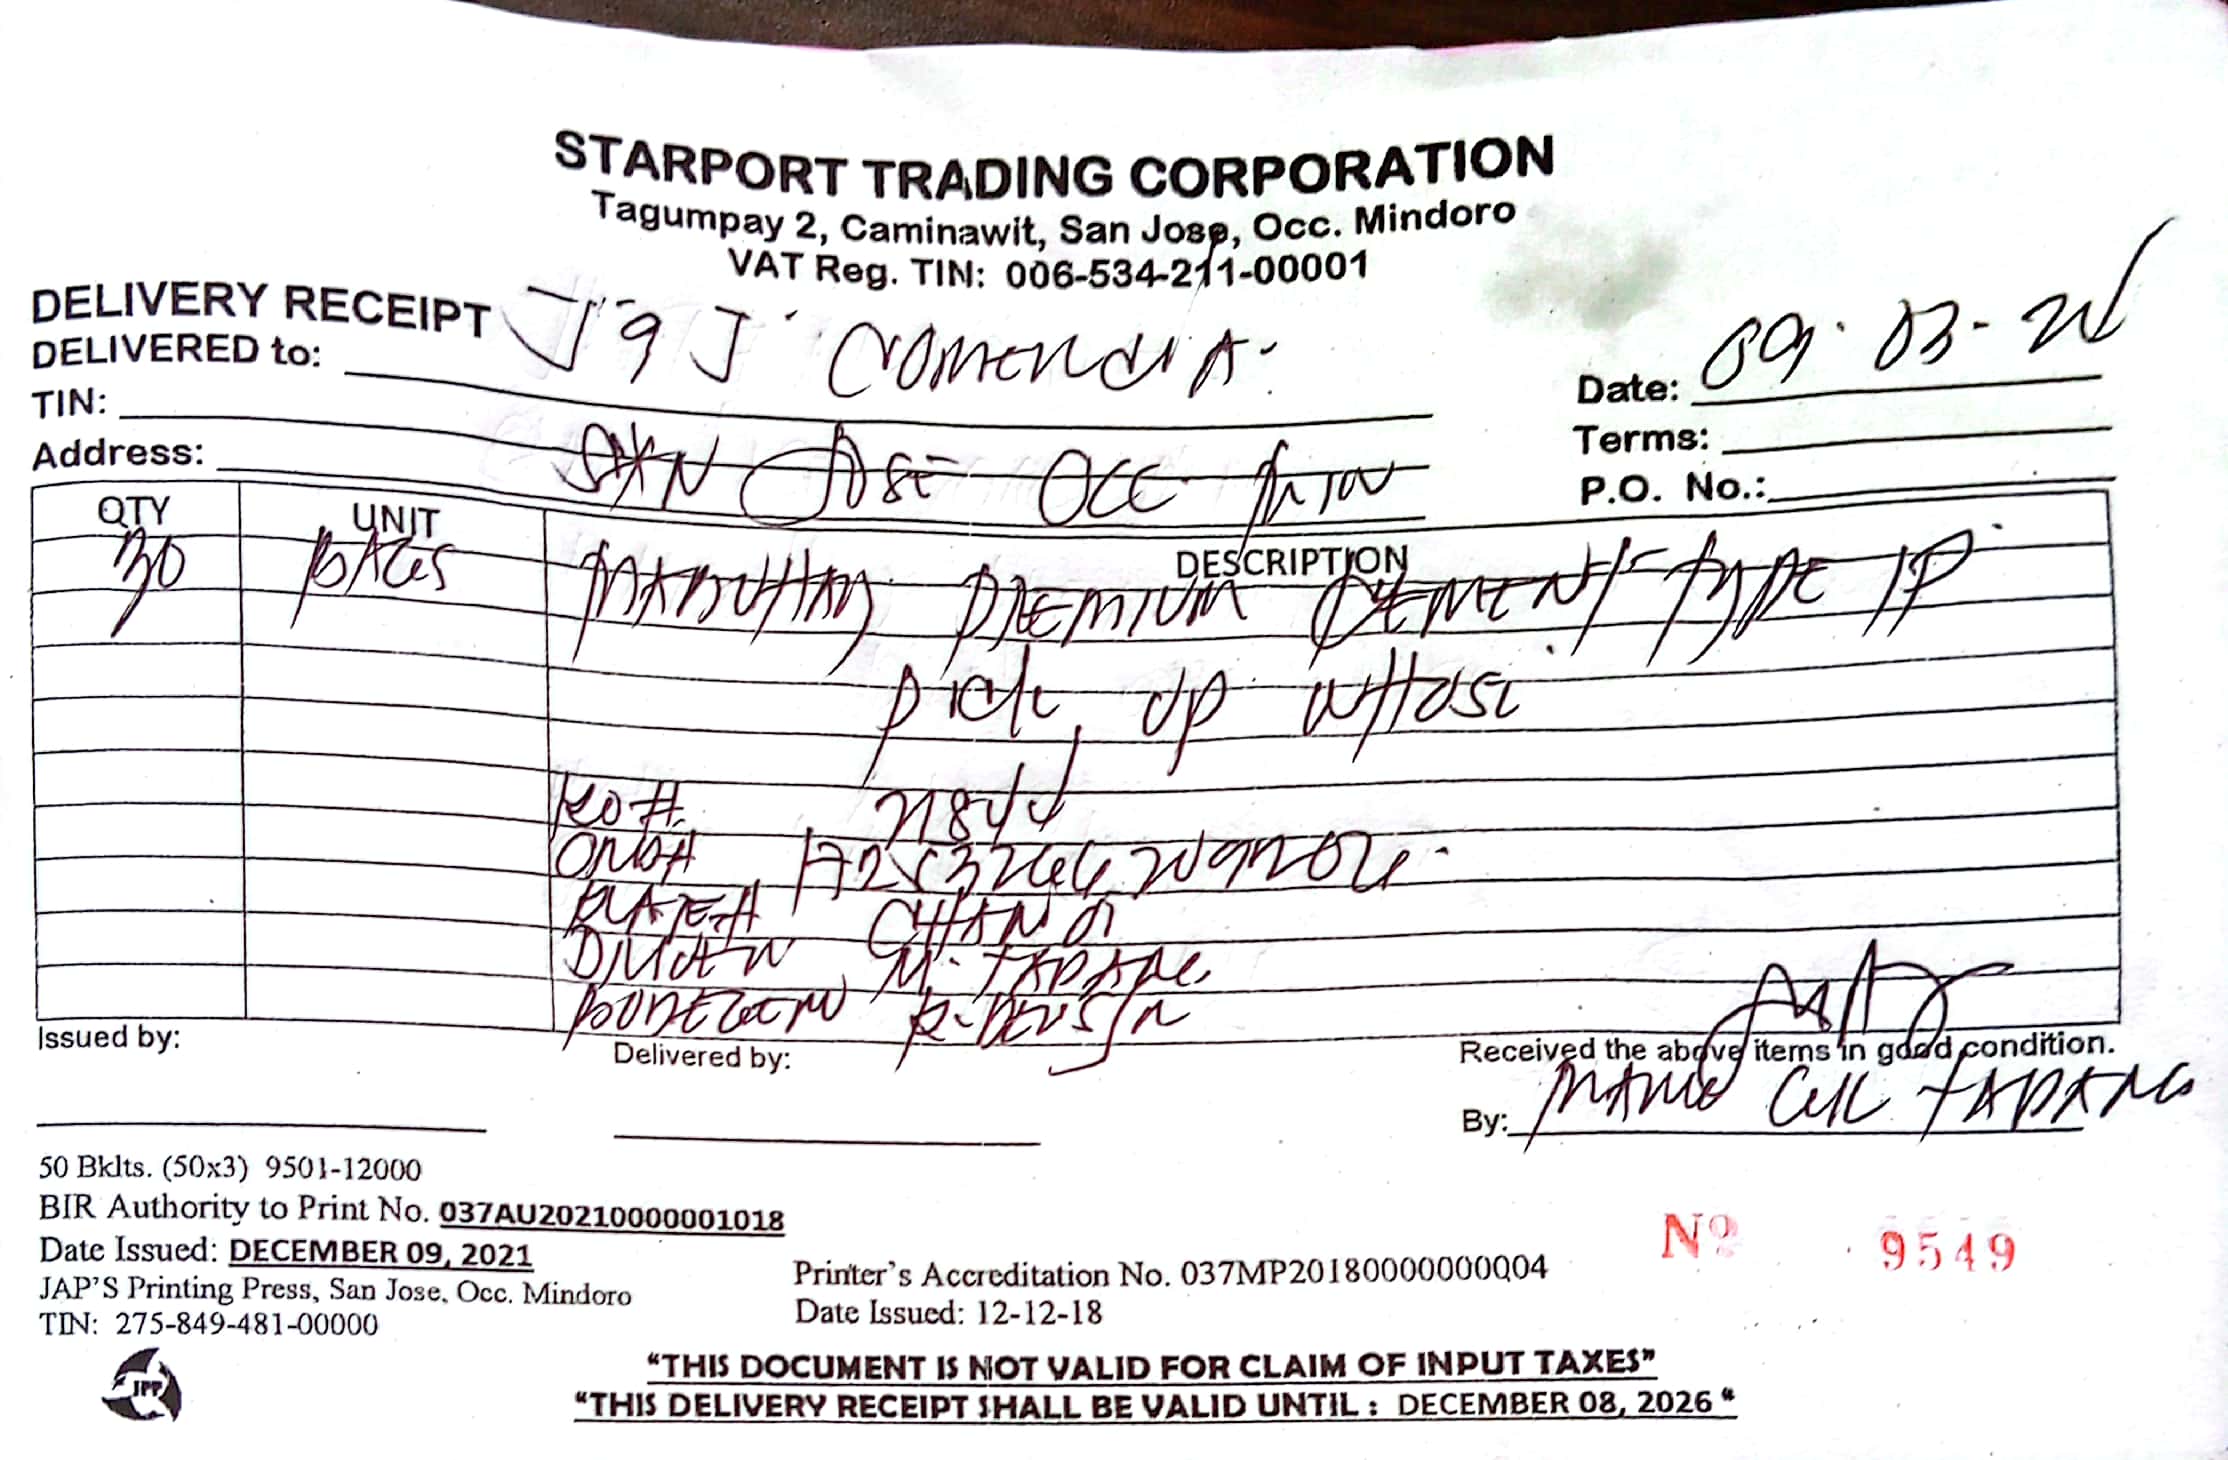 STARPORT TRADING CORPORATION
Tagumpay 2, Caminawit, San Jose, Occ. Mindoro
VAT Reg. TIN: 006-534-211-00001
DELIVERY RECEIPT
DELIVERED to: J & J
Date: 09-03-22
TIN:
Terms:
Address: SAN JOSE OCC
P.O. No.:
QTY UNIT DESCRIPTION
30 BAGS PREMIUM CEMENT TYPE 1P
Pick up WHOSE
PLATE#
M. TAPANG
Issued by:
Delivered by:
Received the above items in good condition.
By: TAPANG
50 Bklts. (50x3) 9501-12000
BIR Authority to Print No. 037AU20210000001018
Date Issued: DECEMBER 09, 2021
JAP'S Printing Press, San Jose, Occ. Mindoro
TIN: 275-849-481-00000
Printer's Accreditation No. 037MP20180000000004
Date Issued: 12-12-18
Nº 9549
JPP
"THIS DOCUMENT IS NOT VALID FOR CLAIM OF INPUT TAXES"
"THIS DELIVERY RECEIPT SHALL BE VALID UNTIL : DECEMBER 08, 2026 "